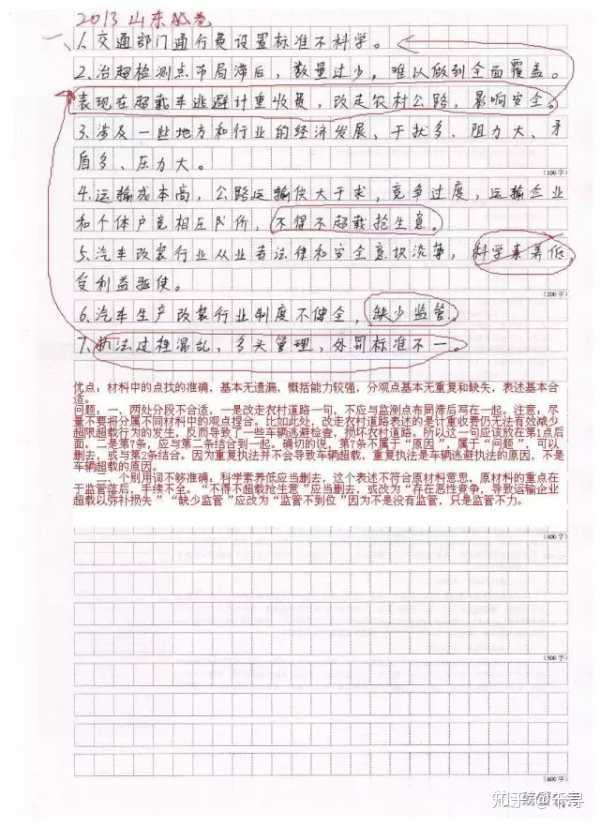 2013 山东 试卷
一、1.交通部门通行费设置标准不科学。
2.治超检测点布局滞后,数量过少,难以做到全面覆盖。
表现在超载车逃避计重收费,改走农村公路,影响安全。
3.涉及一些地方和行业的经济发展、干扰多、阻力大、矛
盾多、压力大。
(100字)
4.运输成本高,公路运输供大于求,竞争过度,运输企业
和个体户竞相压价,不得不超载抢生意。
5.汽车改装行业从业者法律和安全意识淡薄,科学素养低,
(200字)
受利益驱使。
6.汽车生产改装行业制度不健全,缺少监管。
7.执法过程混乱,多头管理,处罚标准不一。
优点:材料中的点找的准确,基本无遗漏,概括能力较强,分观点基本无重复和缺失,表述基本合
适。
问题,一、两处分段不合适,一是改走农村道路一句,不应与监测点布局滞后写在一起。注意,尽
量不要将分属不同材料中的观点捏合。比如此处,改走农村道路表述的是计重收费仍无法有效减少
超限超载行为的发生,反而导致了一些车辆逃避检查,损坏农村道路。所以这一句应该放在第1点后
面。二是第7条,应与第二条结合到一起。确切的说,第7条不属于“原因”,属于“问题”,可以
删去,或与第2条结合。因为重复执法并不会导致车辆超载,重复执法是车辆逃避执法的原因,不是
车辆超载的原因。
二、个别用词不够准确:科学素养低应当删去,这个表述不符合原材料意思,原材料的重点在
于监管落后,手续不全。“不得不超载抢生意”应当删去,或改为“存在恶性竞争,导致运输企业
超载以弥补损失”“缺少监管”应改为“监管不到位”因为不是没有监管,只是监管不力。
(400字)
(500字)
(600字)
知乎 @乐寻